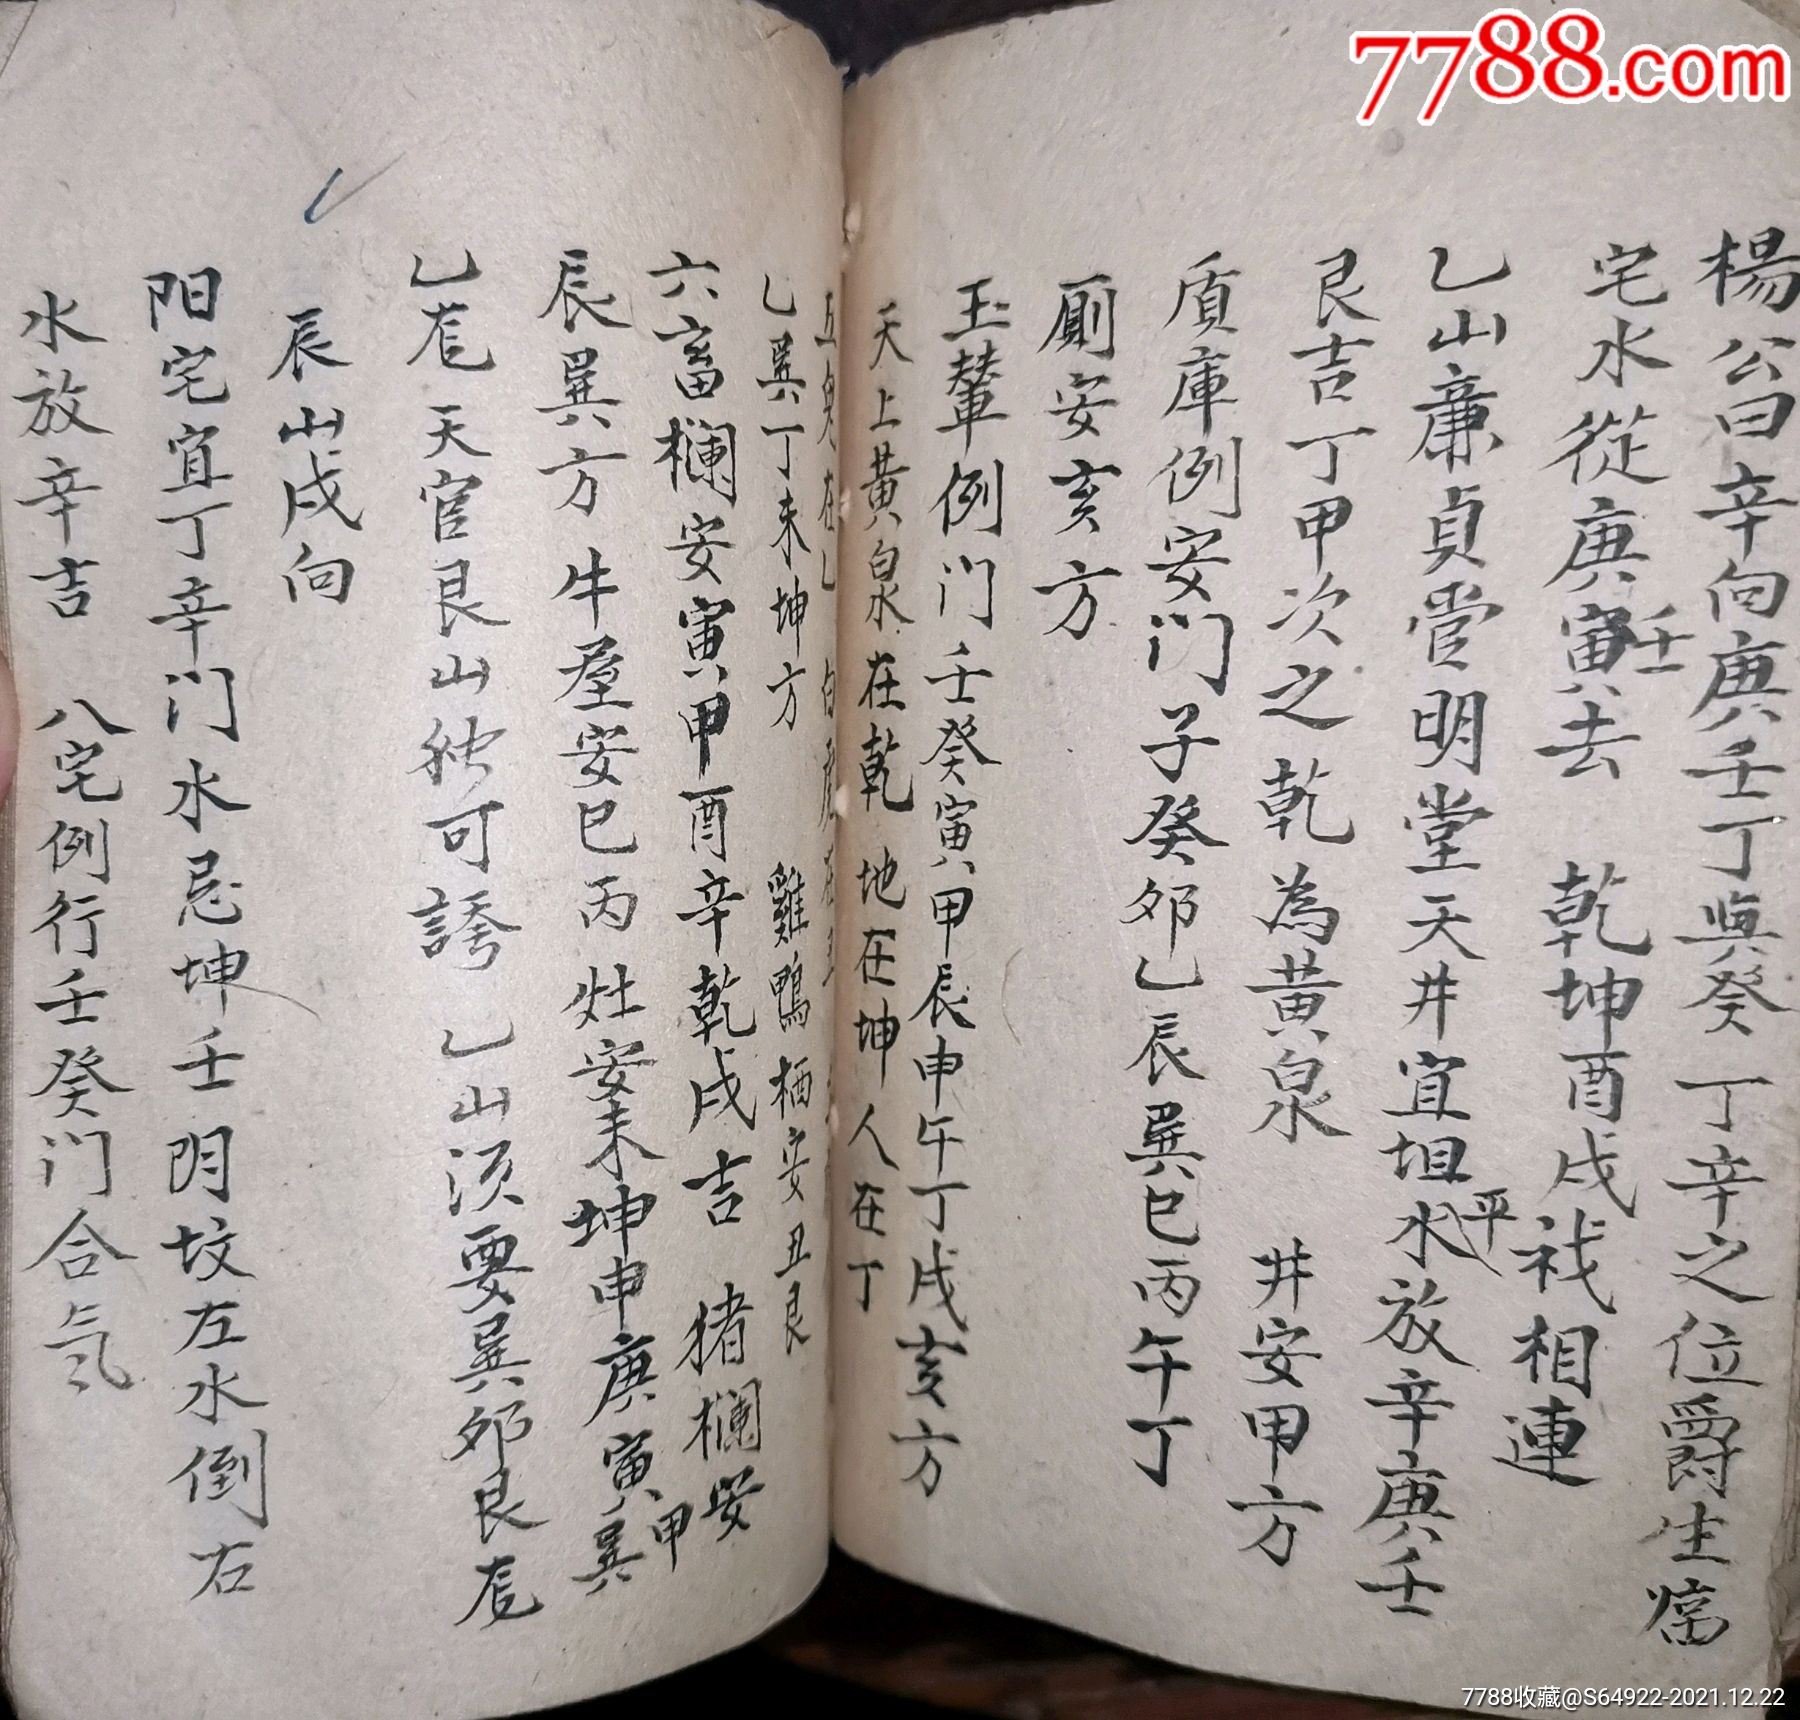 7788.com
楊公曰辛向庚壬丁與癸丁辛之位爵生
宅水從庚寅壬去 乾坤酉戌相連
乙山廉貞當明堂天井宜坦平水放辛庚壬
艮吉丁甲次之乾為黃泉 井安甲方
質庫例安门子癸卯乙辰巽巳丙午丁
厠安亥方
玉輦例门壬癸寅甲辰申午丁戌亥方
天上黃泉在乾 地在坤人在丁
在乙 白虎在
乙巽丁未坤方 雞鴨栖安丑艮
六畜欄安寅甲酉辛乾戌吉 猪欄安甲
辰巽方牛屋安巳丙灶安未坤申庚寅巽
乙 天官艮山 可誇 乙山须要巽卯艮
辰山戌向
阳宅宜丁辛门水忌坤壬阴坟左水倒右
水放辛吉 八宅例行壬癸门合氣
7788收藏@S64922-2021.12.22